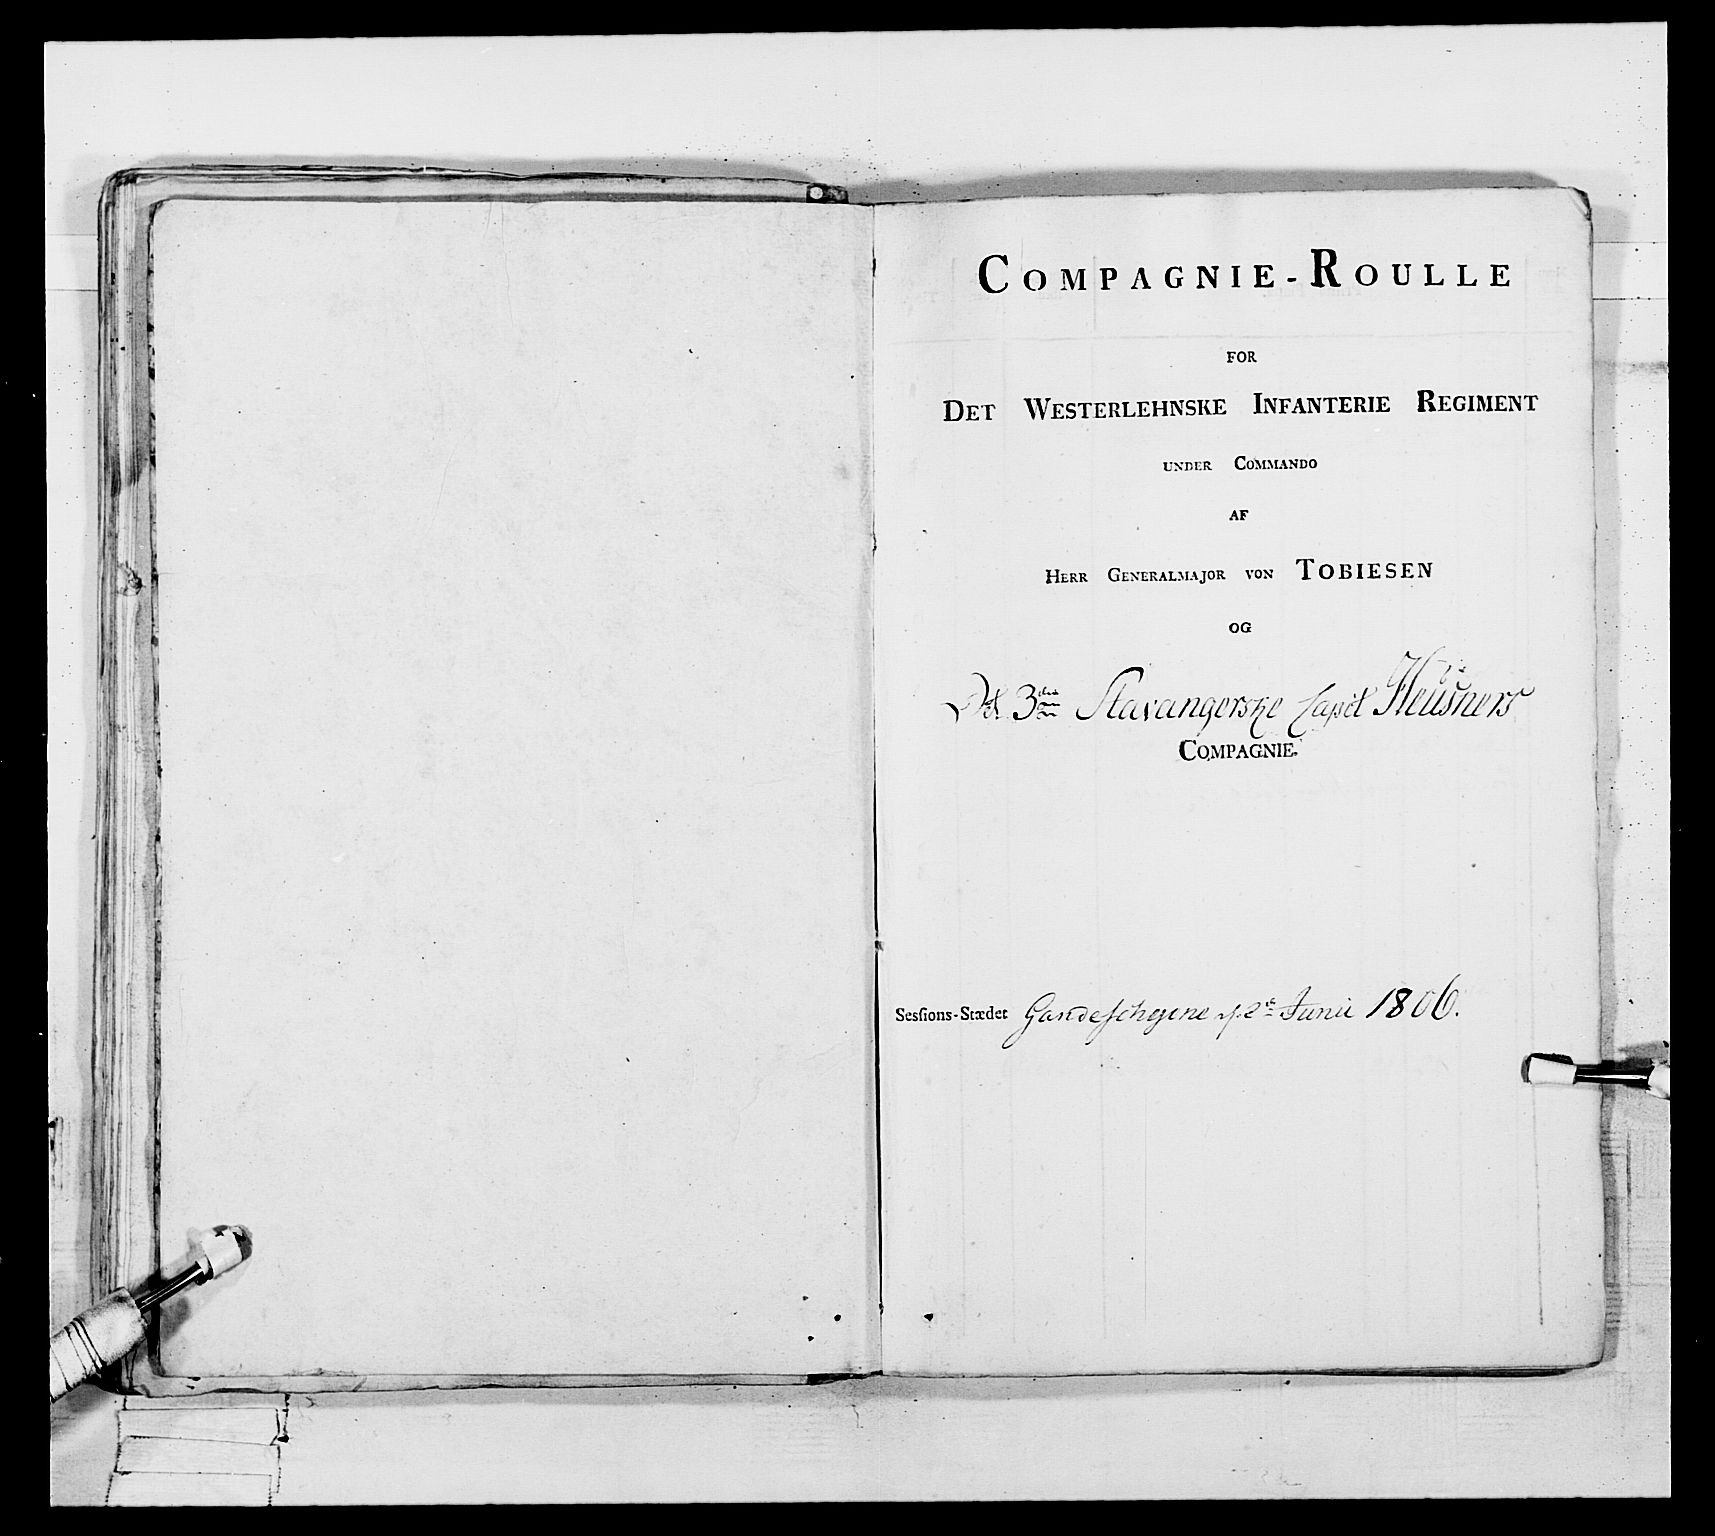 COMPAGNIE-ROULLE
FOR
DET WESTERLEHNSKE INFANTERIE REGIMENT
UNDER COMMANDO
AF
HERR GENERALMAJOR VON TOBIESEN
OG
Det 3die Stavangerske Capit Heusners
COMPAGNIE.
Sesſions-Stædet Gandeschegene d. 2t Junii 1806.